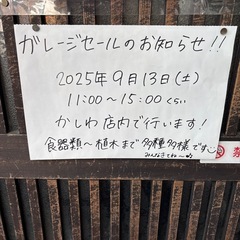 ガレージセールのお知らせ!!
2025年9月13日(土)
11:00～15:00くらい
かしわ店内で行います!
食器類～植木まで多種多様です
みんなきてね〜